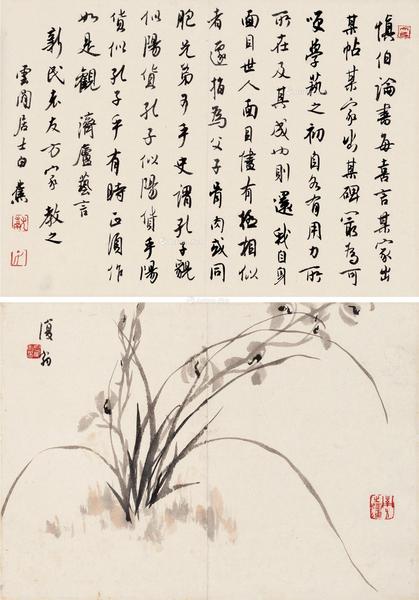 慎伯論書每喜言某家出
某帖某家出某碑最為可
哂學蓺之初自各有用力所
所在及其成功則還我自身
面目世人面目儘有極相似
者遂指為父子骨肉或同
胞兄弟乎史謂孔子觀
似陽貨孔子似陽貨乎陽
貨似孔子乎有時正須作
如是觀 濟廬藝言
新民老友方家教之
雲間居士白蕉